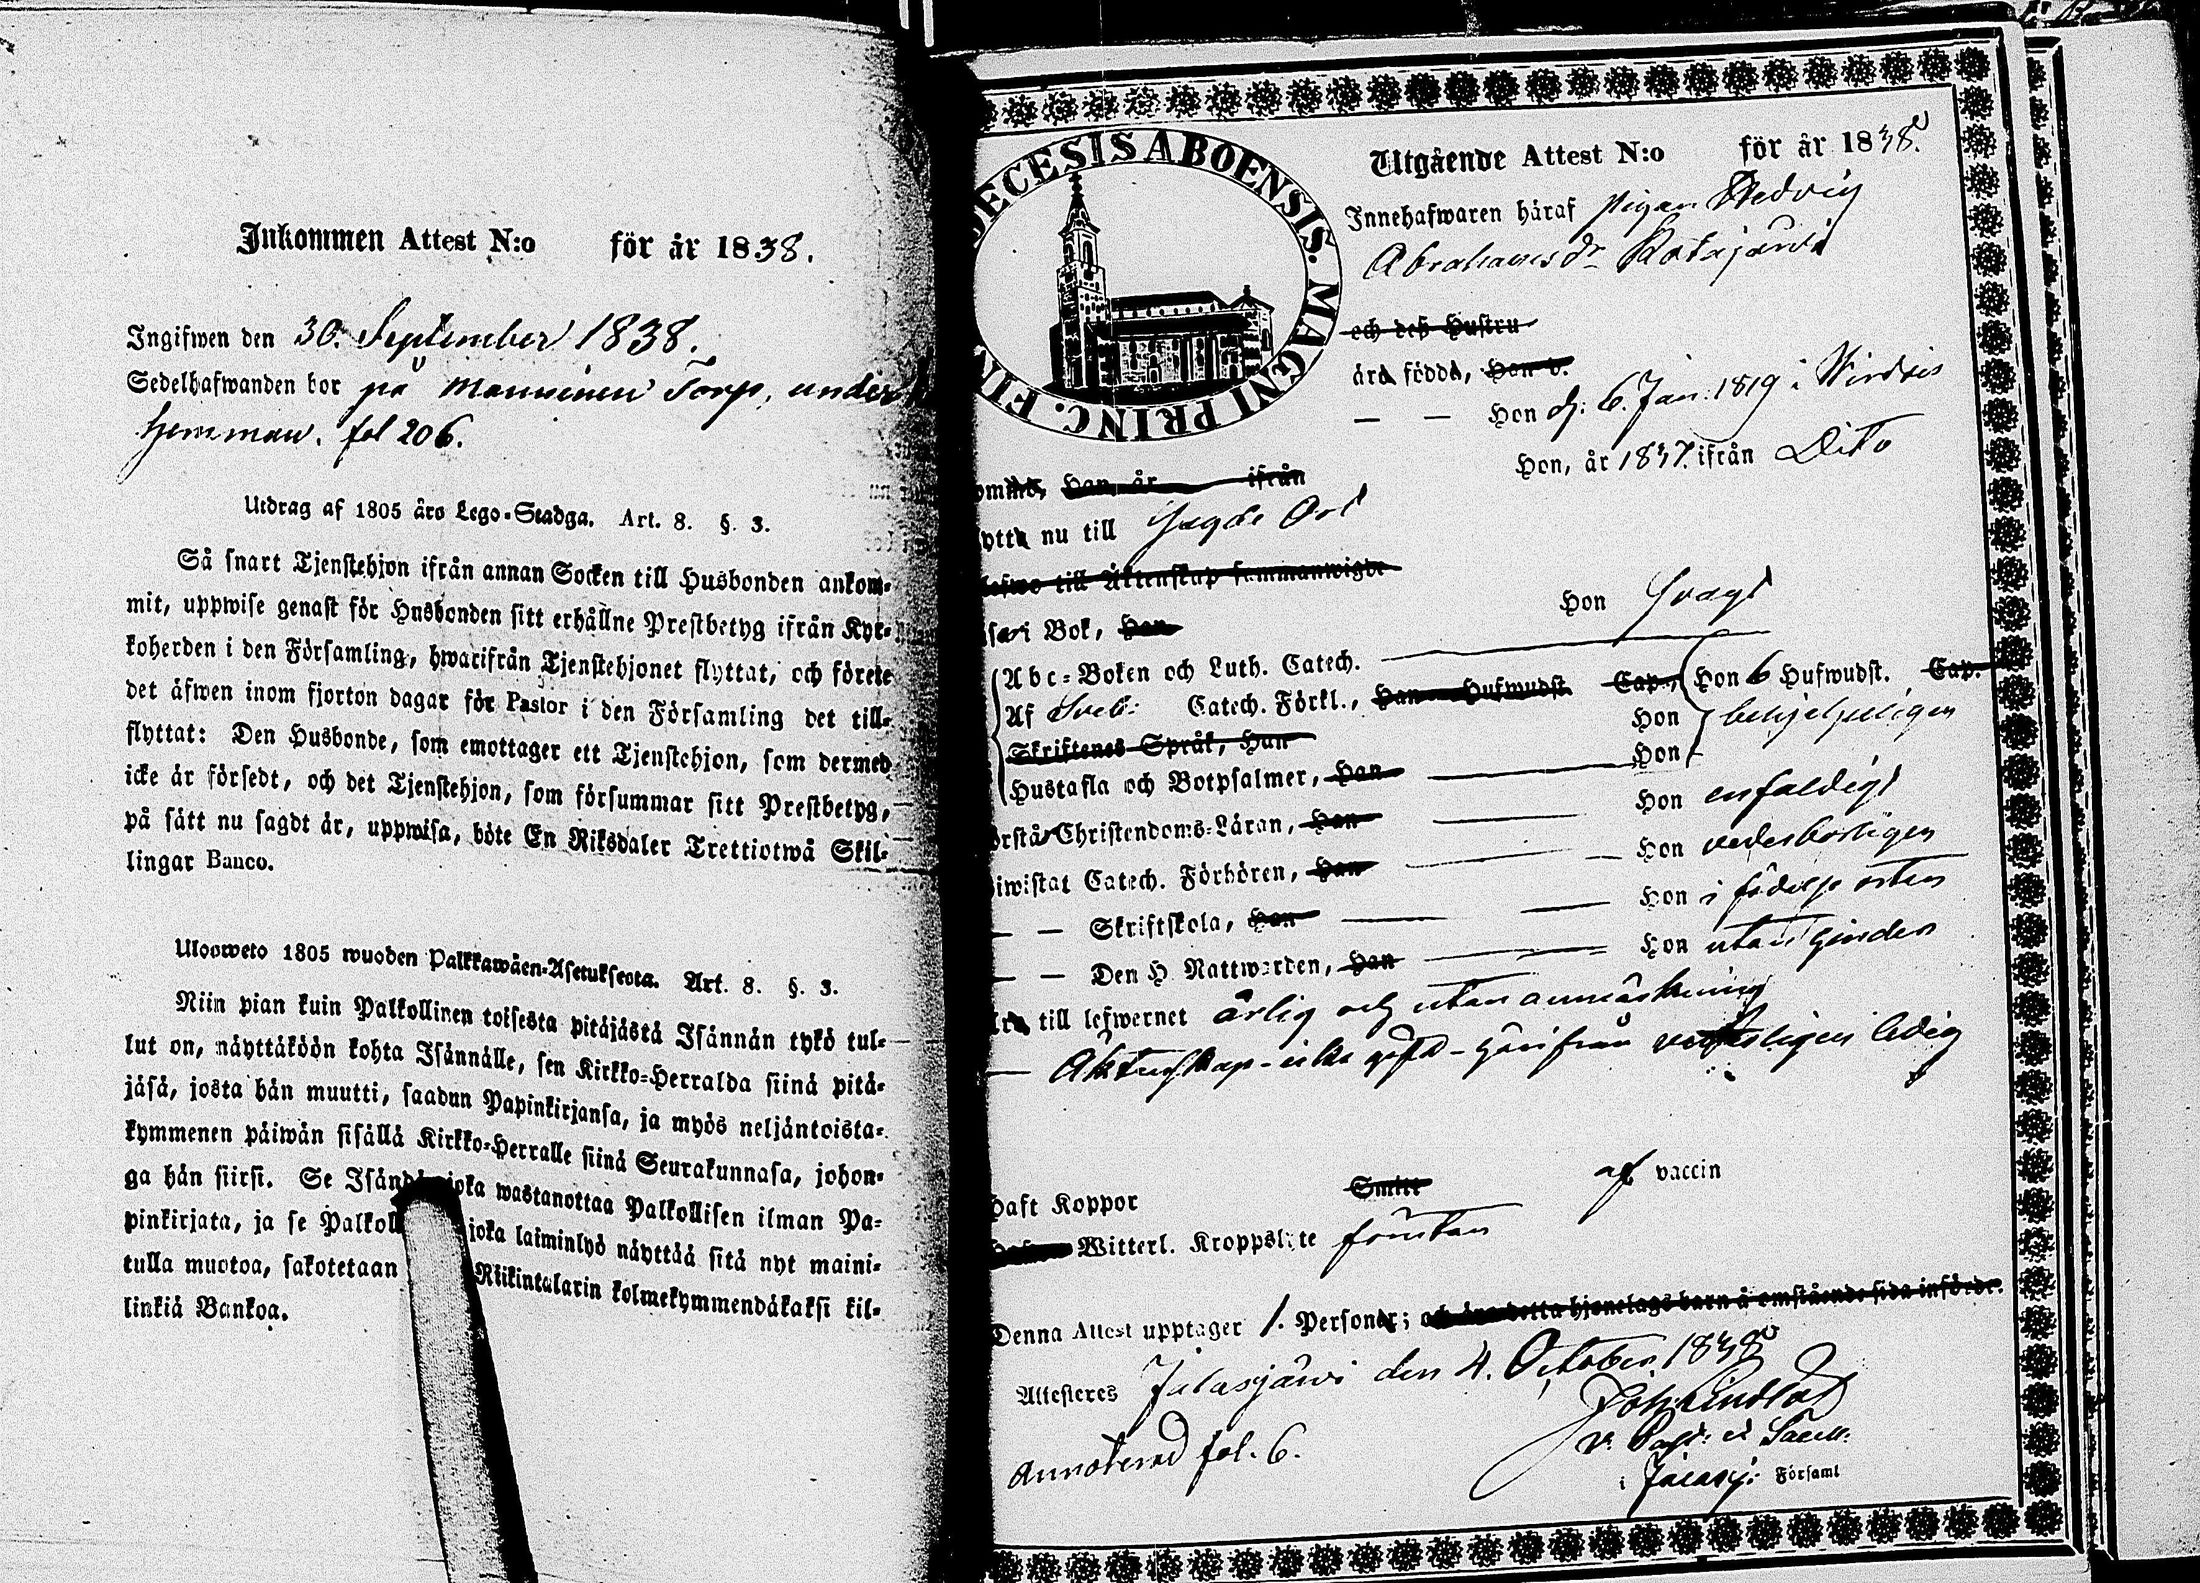 Inkommen Attest N:o för år 1838.
Ingifwen den 30. September 1838.
Sedelhafwanden bor på Manninen Torp, under
Hemman. fol 206.
Utdrag af 1805 års Lego-Stadga. Art. 8. §. 3.
Så snart Tjenstehjon ifrån annan Socken till Husbonden ankom-
mit, uppwise genast för Husbonden sitt erhållne Prestbetyg ifrån Kyr-
koherden i den Församling, hwarifrån Tjenstehjonet flyttat, och förete
det äfwen inom fjorton dagar för Pastor i den Församling det till-
flyttat: Den Husbonde, som emottager ett Tjenstehjon, som dermed
icke är försedt, och det Tjenstehjon, som försummar sitt Prestbetyg,
på sätt nu sagdt är, uppwisa, böte En Riksdaler Trettiotwå Skil-
lingar Banco.
Uloosweto 1805 wuoden Palkkawäen-Asetuksesta. Art. 8. §. 3.
Niin pian kuin Palkollinen toisesta pitäjästä Isännän tykö tul-
lut on, näyttäköön kohta Isännälle, sen Kirkko-Herralda siinä pitä-
jäsä, josta hän muutti, saadun Papinkirjansa, ja myös neljäntoista-
kymmenen päiwän sisällä Kirkko-Herralle siinä Seurakunnasa, johon-
ga hän siirsi. Se Isändä, joka wastanottaa Palkollisen ilman Pa-
pinkirjata, ja se Palkoll joka laiminlyö näyttää sitä nyt maini-
tulla muotoa, sakotetaan Riikintalarin kolmekymmendäkaksi kil-
linkiä Bankoa.
DECESIS ABOENSIS. MAGNI PRINC. FIN
Utgående Attest N:o för år 1838.
Innehafwaren häraf pigan Hedvig
Abrahamsdr Katajamäki
och deß Hustru
ära födda, Han d.
— — Hon d: 6. Jan. 1819 i Wirdois
ommit, Han, år ifrån Hon, år 1837. ifrån Dito
ytta nu till Sagde Ort
till Äktenskap sammanwigde
i Bok, Han Hon Svagt
Abc-Boken och Luth. Catech.
Af Sveb: Catech. Förkl., Han Hufwudst. Cap., Hon 6 Hufwudst. Cap.
Skriftenes Språk, Han Hon behjelpeligen
Hustafla och Botpsalmer, Han Hon
örstår Christendoms-Läran, Han Hon enfaldigt
iwistat Catech. Förhören, Han Hon vederbörligen
— — Skriftskola, Han Hon i födelse orten
— — Den H. Nattwarden, Han Hon utan hinder
till lefwernet ärlig och utan anmärkning
— Äktenskap - icke gift - härifrån ledig
haft Koppor Smitt af vaccin
Witterl. Kroppslyte förutan
Denna Attest upptager 1. Personer; och äro detta hjonelags barn å omstående sida införde.
Attesteres Jalasjärwi den 4. October 1838
Annoterad fol. 6.
i Jalasj: Församl